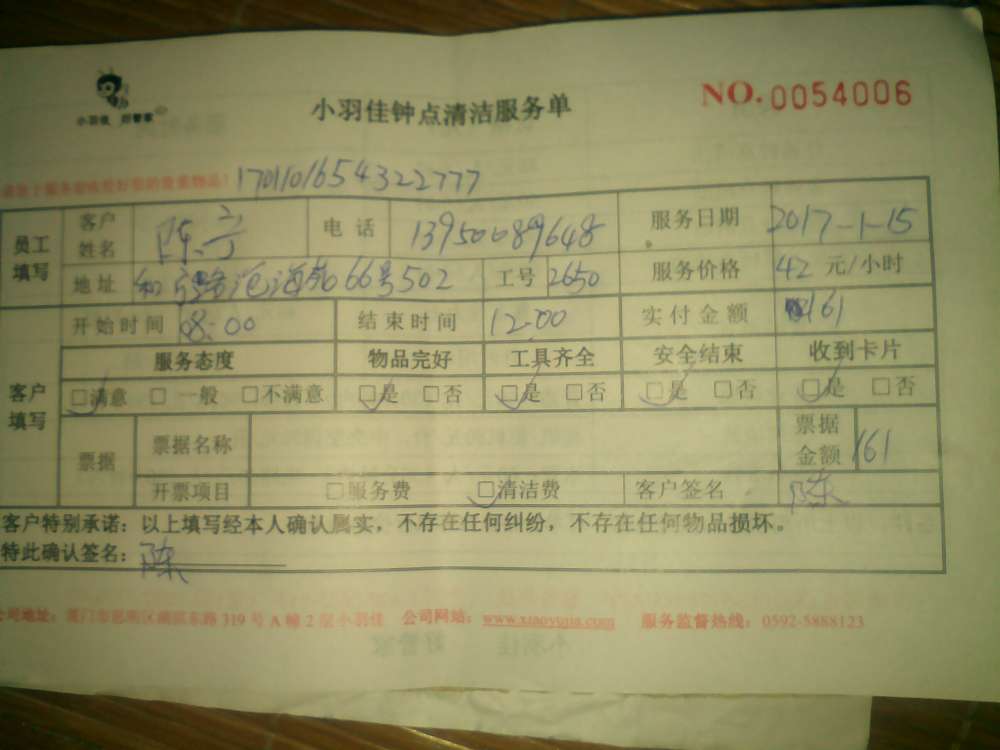 小羽佳 好管家
小羽佳钟点清洁服务单
NO.0054006
17011016543 22777
员工填写 客户姓名 陈 电话 13950089648 服务日期 2017-1-15
地址 沧海苑66号502 工号 2650 服务价格 42 元/小时
客户填写 开始时间 08:00 结束时间 12:00 实付金额 161
服务态度 物品完好 工具齐全 安全结束 收到卡片
□满意 □一般 □不满意 □是 □否 □是 □否 □是 □否 □是 □否
票据 票据名称 票据金额 161
开票项目 □服务费 □清洁费 客户签名 陈
客户特别承诺：以上填写经本人确认属实，不存在任何纠纷，不存在任何物品损坏。
特此确认签名：陈
公司地址：厦门市思明区湖滨东路319号A幢2层小羽佳 公司网站：www.xiaoyujia.com 服务监督热线：0592-5888123